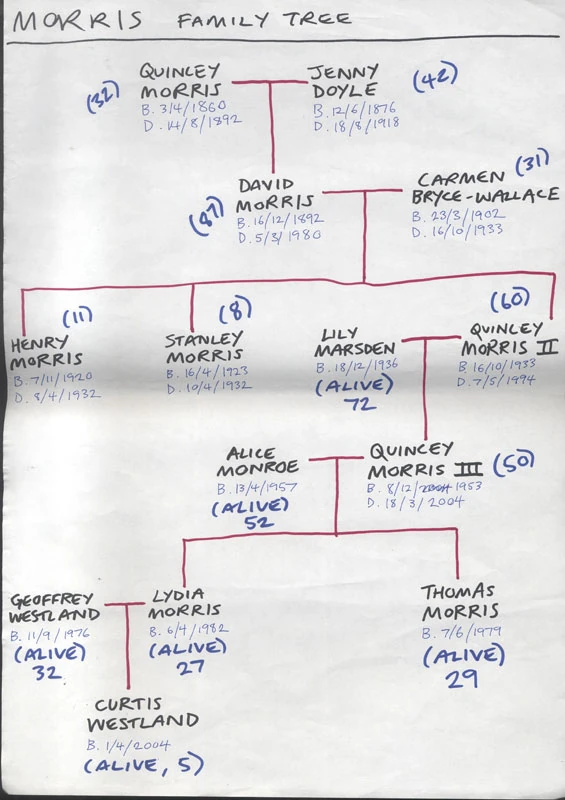 MORRIS FAMILY TREE
QUINCEY
MORRIS
B. 3/4/1860
D. 14/8/1892
(32)
JENNY
DOYLE
B. 12/6/1876
D. 18/8/1918
(42)
DAVID
MORRIS
B. 16/12/1892
D. 5/3/1980
(87)
CARMEN
BRYCE-WALLACE
B. 23/3/1902
D. 16/10/1933
(31)
(11)
HENRY
MORRIS
B. 7/11/1920
D. 8/4/1932
(8)
STANLEY
MORRIS
B. 16/4/1923
D. 10/4/1932
LILY
MARSDEN
B. 18/12/1936
(ALIVE)
72
(60)
QUINCEY
MORRIS II
B. 16/10/1933
D. 7/5/1994
ALICE
MONROE
B. 13/4/1957
(ALIVE)
52
QUINCEY
MORRIS III
B. 8/12/1953
D. 18/3/2004
(50)
GEOFFREY
WESTLAND
B. 11/9/1976
(ALIVE)
32
LYDIA
MORRIS
B. 6/4/1982
(ALIVE)
27
THOMAS
MORRIS
B. 7/6/1979
(ALIVE)
29
CURTIS
WESTLAND
B. 1/4/2004
(ALIVE, 5)